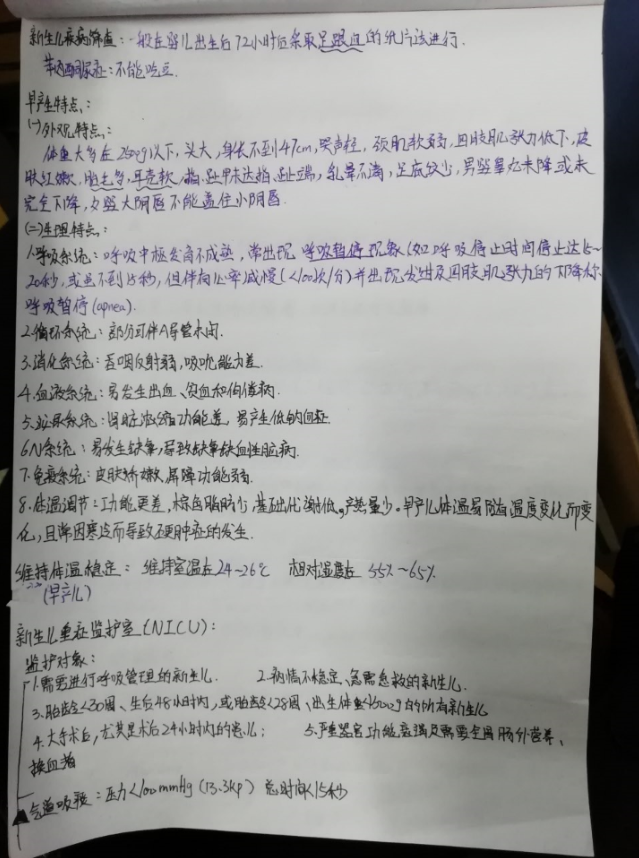 新生儿疾病筛查：一般在婴儿出生后72小时后采取足跟血的纸片法进行.
苯丙酮尿症：不能吃豆.
早产特点：
(一)外观特点：
体重大多在2500g以下，头大，身长不到47cm，哭声轻，颈肌软弱，四肢肌张力低下，皮
肤红嫩，胎毛多，耳壳软，指、趾甲未达指、趾端，乳晕不清，足底纹少，男婴睾丸未降或未
完全下降，女婴大阴唇不能盖住小阴唇
(二)生理特点：
1.呼吸系统：呼吸中枢发育不成熟，常出现 呼吸暂停现象(如呼吸停止时间停止达15~
20秒，或虽不到15秒，但伴有心率减慢(<100次/分)并出现发绀及四肢肌张力的下降称
呼吸暂停(apnea).
2.循环系统：部分可伴A导管未闭.
3.消化系统：吞咽反射弱，吸吮能力差.
4.血液系统：易发生出血、贫血和佝偻病.
5.泌尿系统：肾脏浓缩功能差，易产生低钠血症
6.N系统：易发生缺氧，导致缺氧缺血性脑病.
7.免疫系统：皮肤娇嫩，屏障功能弱.
8.体温调节：功能更差，棕色脂肪少，基础代谢低，产热量少。早产儿体温易随温度变化而变
化，且常因寒冷而导致硬肿症的发生.
维持体温稳定：维持室温在24-26℃ 相对湿度在 55%~65%
(早产儿)
新生儿重症监护室(NICU)：
监护对象：
1.需要进行呼吸管理的新生儿. 2.病情不稳定、急需急救的新生儿.
3.胎龄<30周、生后48小时内，或胎龄<28周、出生体重<1500g的所有新生儿
4.大手术后，尤其是术后24小时内的患儿； 5.严重器官功能衰竭及需要全胃肠外营养、
换血者
▲气道吸引：压力<100mmHg(13.3kp) 总时间<15秒